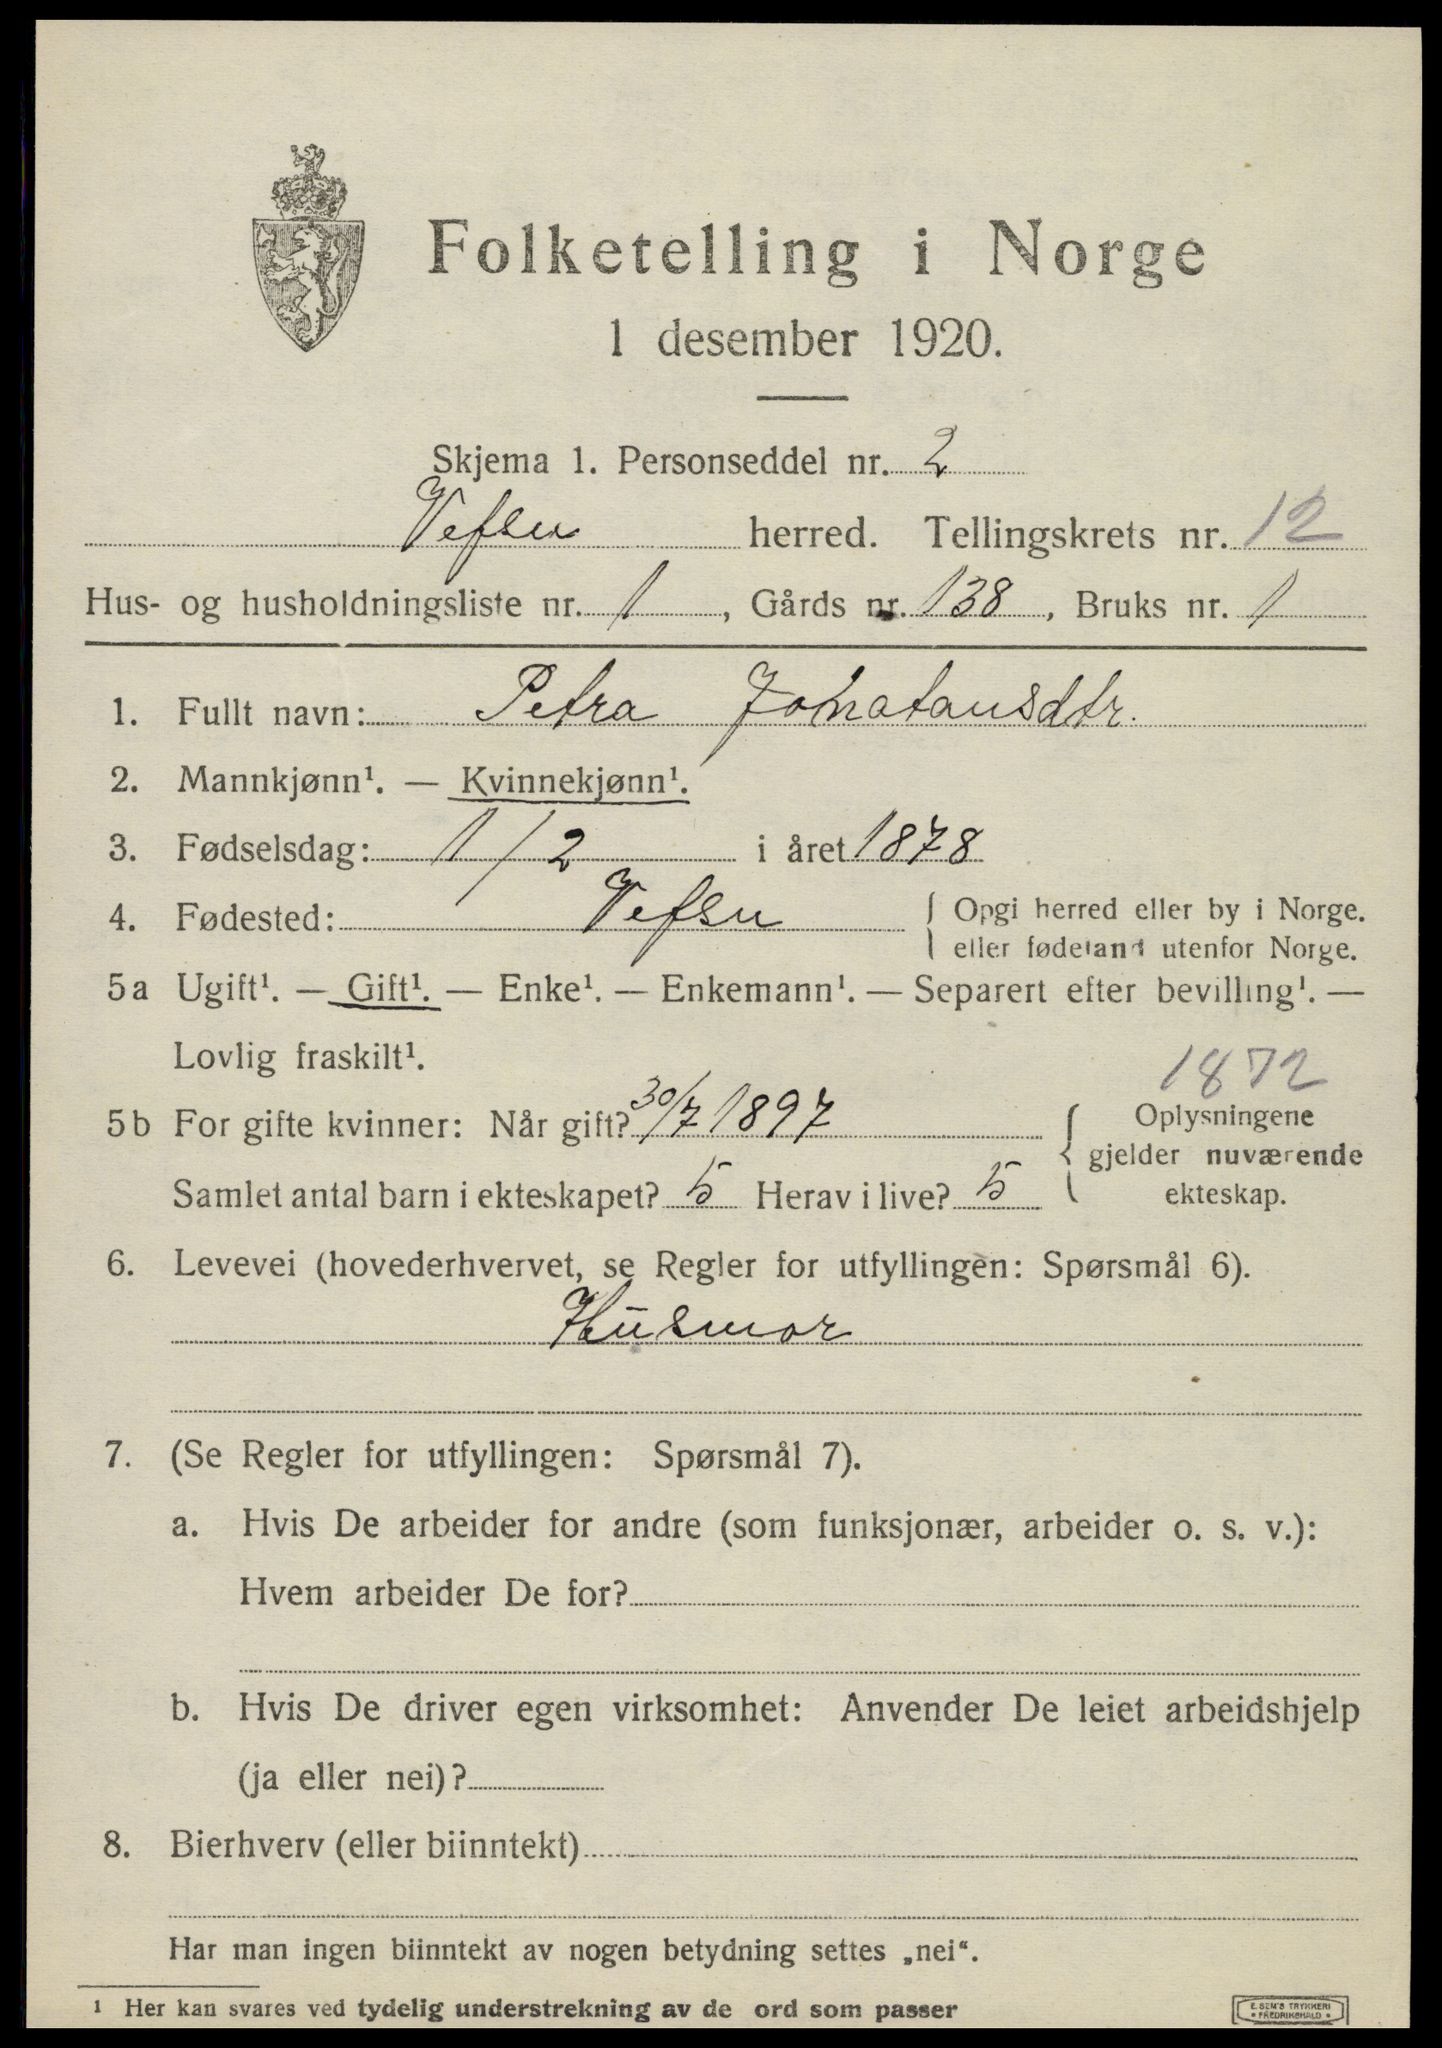 Folketelling i Norge
1 desember 1920.
Skjema 1. Personseddel nr. 2
Vefsn herred. Tellingskrets nr. 12
Hus- og husholdningsliste nr. 1, Gårds nr. 138, Bruks nr. 1
1. Fullt navn: Petra Jonatansdtr.
2. Mannkjønn¹. — Kvinnekjønn¹.
3. Fødselsdag: 1/2 i året 1878
4. Fødested: Vefsn { Opgi herred eller by i Norge.
eller fødeland utenfor Norge.
5a Ugift¹. — Gift¹. — Enke¹. — Enkemann¹. — Separert efter bevilling¹. —
Lovlig fraskilt¹.
1872
5b For gifte kvinner: Når gift? 30/7 1897
Samlet antal barn i ekteskapet? 5 Herav i live? 5
Oplysningene
gjelder nuværende
ekteskap.
6. Levevei (hovederhvervet, se Regler for utfyllingen: Spørsmål 6).
Husmor
7. (Se Regler for utfyllingen: Spørsmål 7).
a. Hvis De arbeider for andre (som funksjonær, arbeider o. s. v.):
Hvem arbeider De for?
b. Hvis De driver egen virksomhet: Anvender De leiet arbeidshjelp
(ja eller nei)?
8. Bierhverv (eller biinntekt)
Har man ingen biinntekt av nogen betydning settes „nei“.
¹ Her kan svares ved tydelig understrekning av de ord som passer
E. SEM'S TRYKKERI
• FREDRIKSHALD •